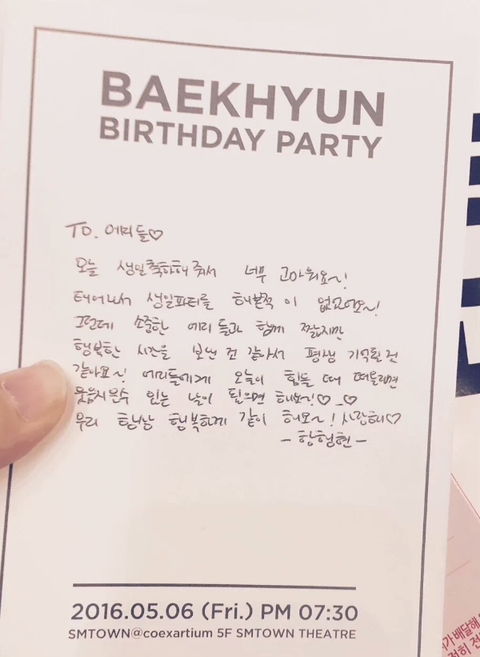 BAEKHYUN
BIRTHDAY PARTY
TO. 에리들♡
오늘 생일축하해 줘서 너무 고마워요~!
태어나서 생일파티를 해본적이 없고요~!
그런데 소중한 에리들과 함께 짧지만
행복한 시간을 보낸 것 같아서 평생 기억할 것
같아요~! 에리들에게 오늘이 힘들 때 떠올리면
웃음지을수 있는 날이 됐으면 해요~!♡_♡
우리 항상 행복하게 같이 해요~! 사랑해♡
2016.05.06 (Fri.) PM 07:30
SMTOWN@coexartium 5F SMTOWN THEATRE
가 배달해